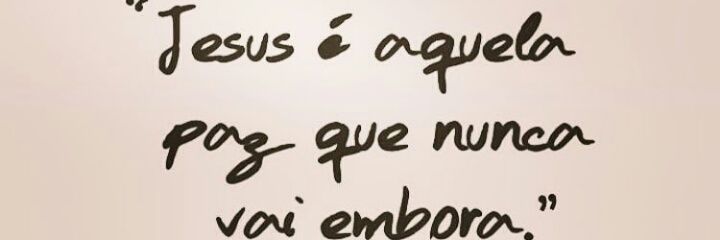 “Jesus é aquela
paz que nunca
vai embora.”